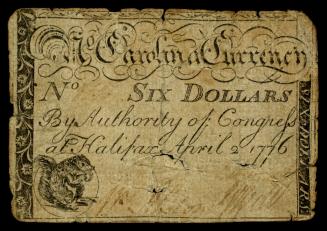 No Carolina Currency
No. SIX DOLLARS
By Authority of Congress
at Halifax April 2 1776